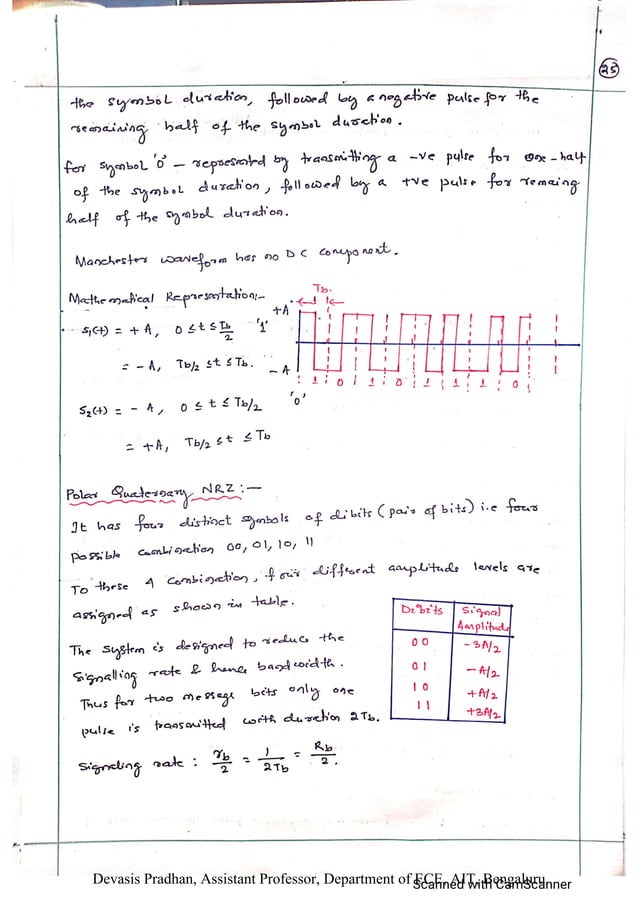 25
the symbol duration, followed by a negative pulse for the
remaining half of the symbol duration.
for symbol '0' – represented by transmitting a -ve pulse for one-half
of the symbol duration, followed by a +ve pulse for remaing
half of the symbol duration.
Manchester waveform has no DC component.
Mathematical Representation:-
S₁(t) = + A, 0 ≤ t ≤ Tb/2 '1'
= - A, Tb/2 ≤ t ≤ Tb.
S₂(t) = - A, 0 ≤ t ≤ Tb/2 '0'
= +A, Tb/2 ≤ t ≤ Tb
Tb.
+A
- A
1 0 1 0 1 1 0
Polar Quaternary NRZ :-
It has four distinct symbols of dibits (pair of bits) i.e four
possible combination 00, 01, 10, 11
To these 4 combination, four different amplitude levels are
assigned as shown in table.
The system is designed to reduce the
signalling rate & hence bandwidth.
Thus for two message bits only one
pulse is transmitted with duration 2Tb.
Signaling rate : rb/2 = 1/2Tb = Rb/2.
Dibits Signal Amplitude
00 -3A/2
01 -A/2
10 +A/2
11 +3A/2
Devasis Pradhan, Assistant Professor, Department of ECE, AIT, Bengaluru
Scanned with CamScanner